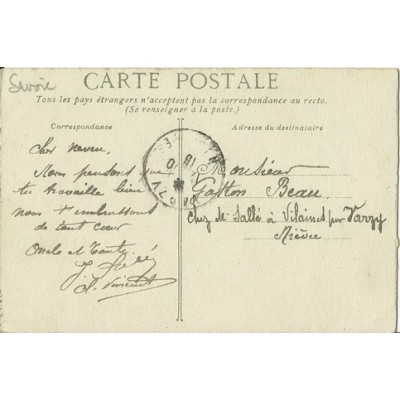 Savoie
CARTE POSTALE
Tous les pays étrangers n'acceptent pas la correspondance au recto.
(Se renseigner à la poste.)
Correspondance
Adresse du destinataire
Cher neveu.
Nous pensons que
tu travaille bien
nous t'embrassons
de tout cœur
Oncle et Tante
Monsieur
Gaston Beau
Chez Mr Sallé à Vilaines par Varzy
Nièvre